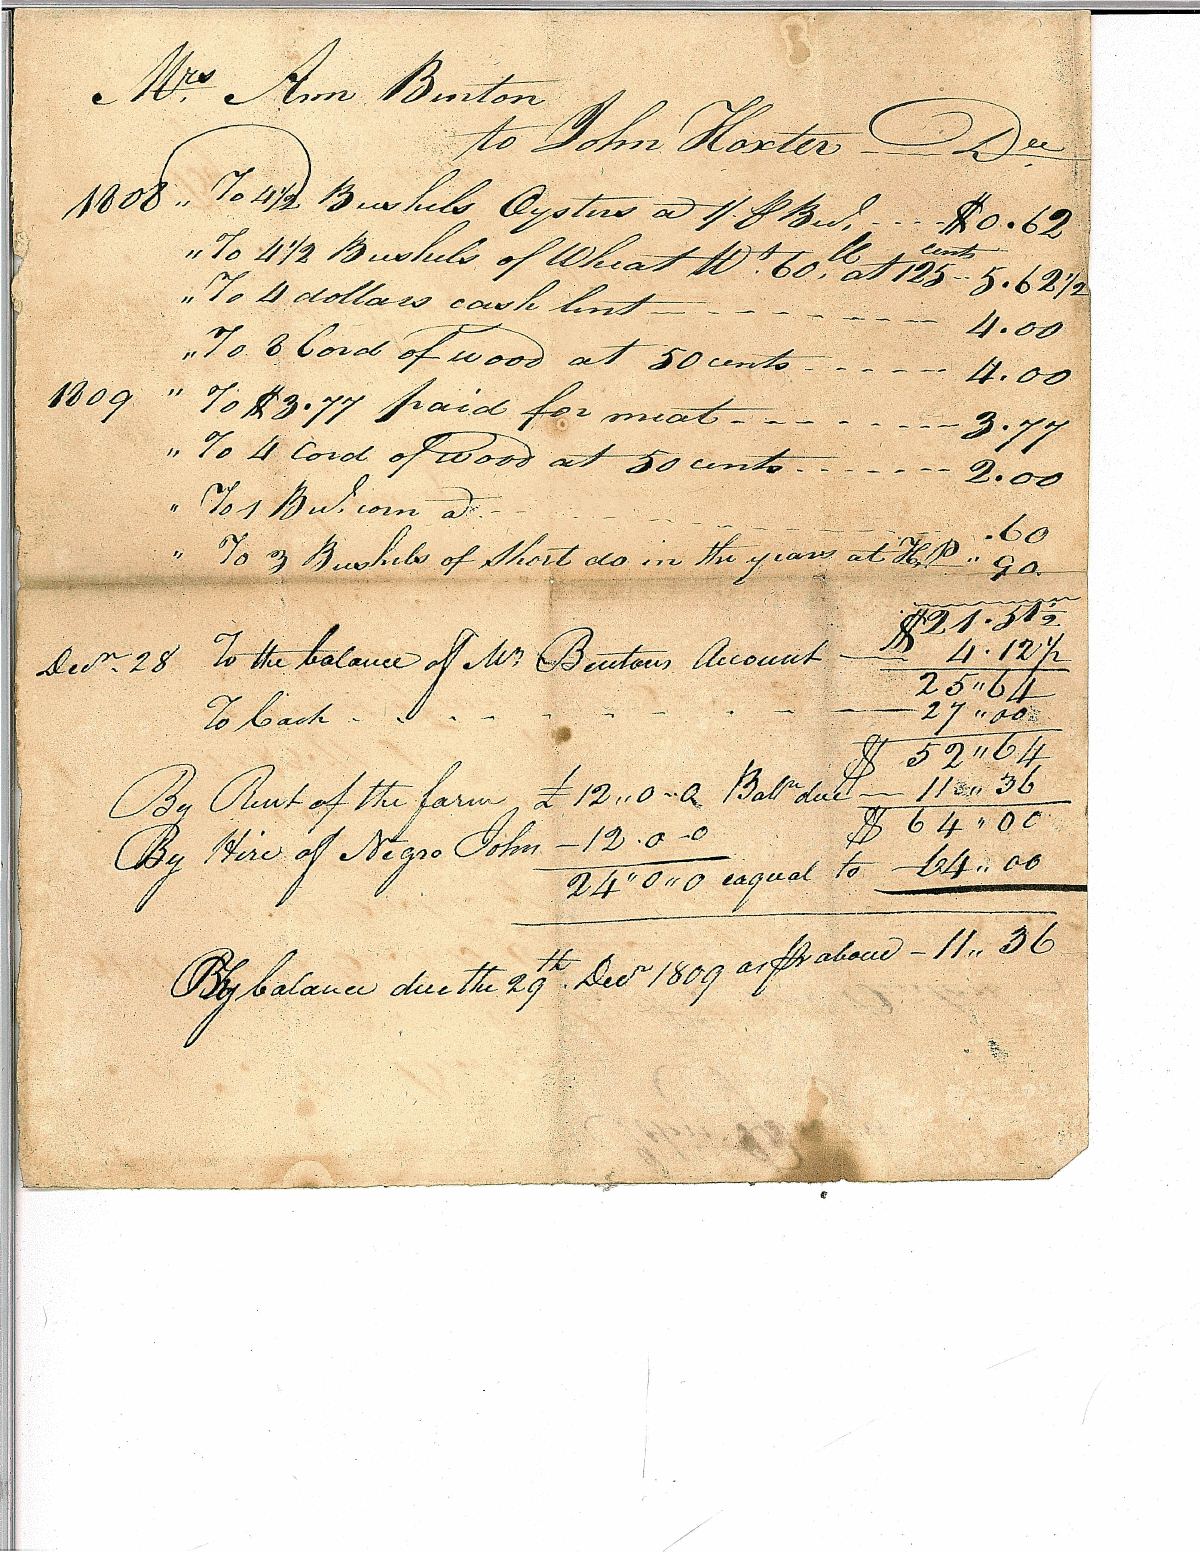 Mrs. Ann Benton
to John Hoxter Dr
1808 „ To 4 1/2 Bushels Oysters a 1/. ⅌ Bul. $0.62
„ To 4 1/2 Bushels of Wheat Wt. 60 lb at 125 cents 5.62 1/2
„ To 4 dollars cash lent 4.00
„ To 8 Cord of wood at 50 cents 4.00
1809 „ To $3.77 paid for meat 3.77
„ To 4 Cord of wood at 50 cents 2.00
„ To 1 Bul. corn a .60
„ To 3 Bushels of Short do in the years at „ 90.
$21.51 1/2
Decr. 28 To the balance of Mr Bentons Account 4.12 1/2
25„64
To Cash 27„00
$ 52„64
By Rent of the farm £ 12„0-0 Balce due 11„36
$ 64„00
By Hire of Negro John - 12.0-0
24„0„0 eaqual to 64„00
By balance due the 29th. Decr 1809 as pr above - 11„36